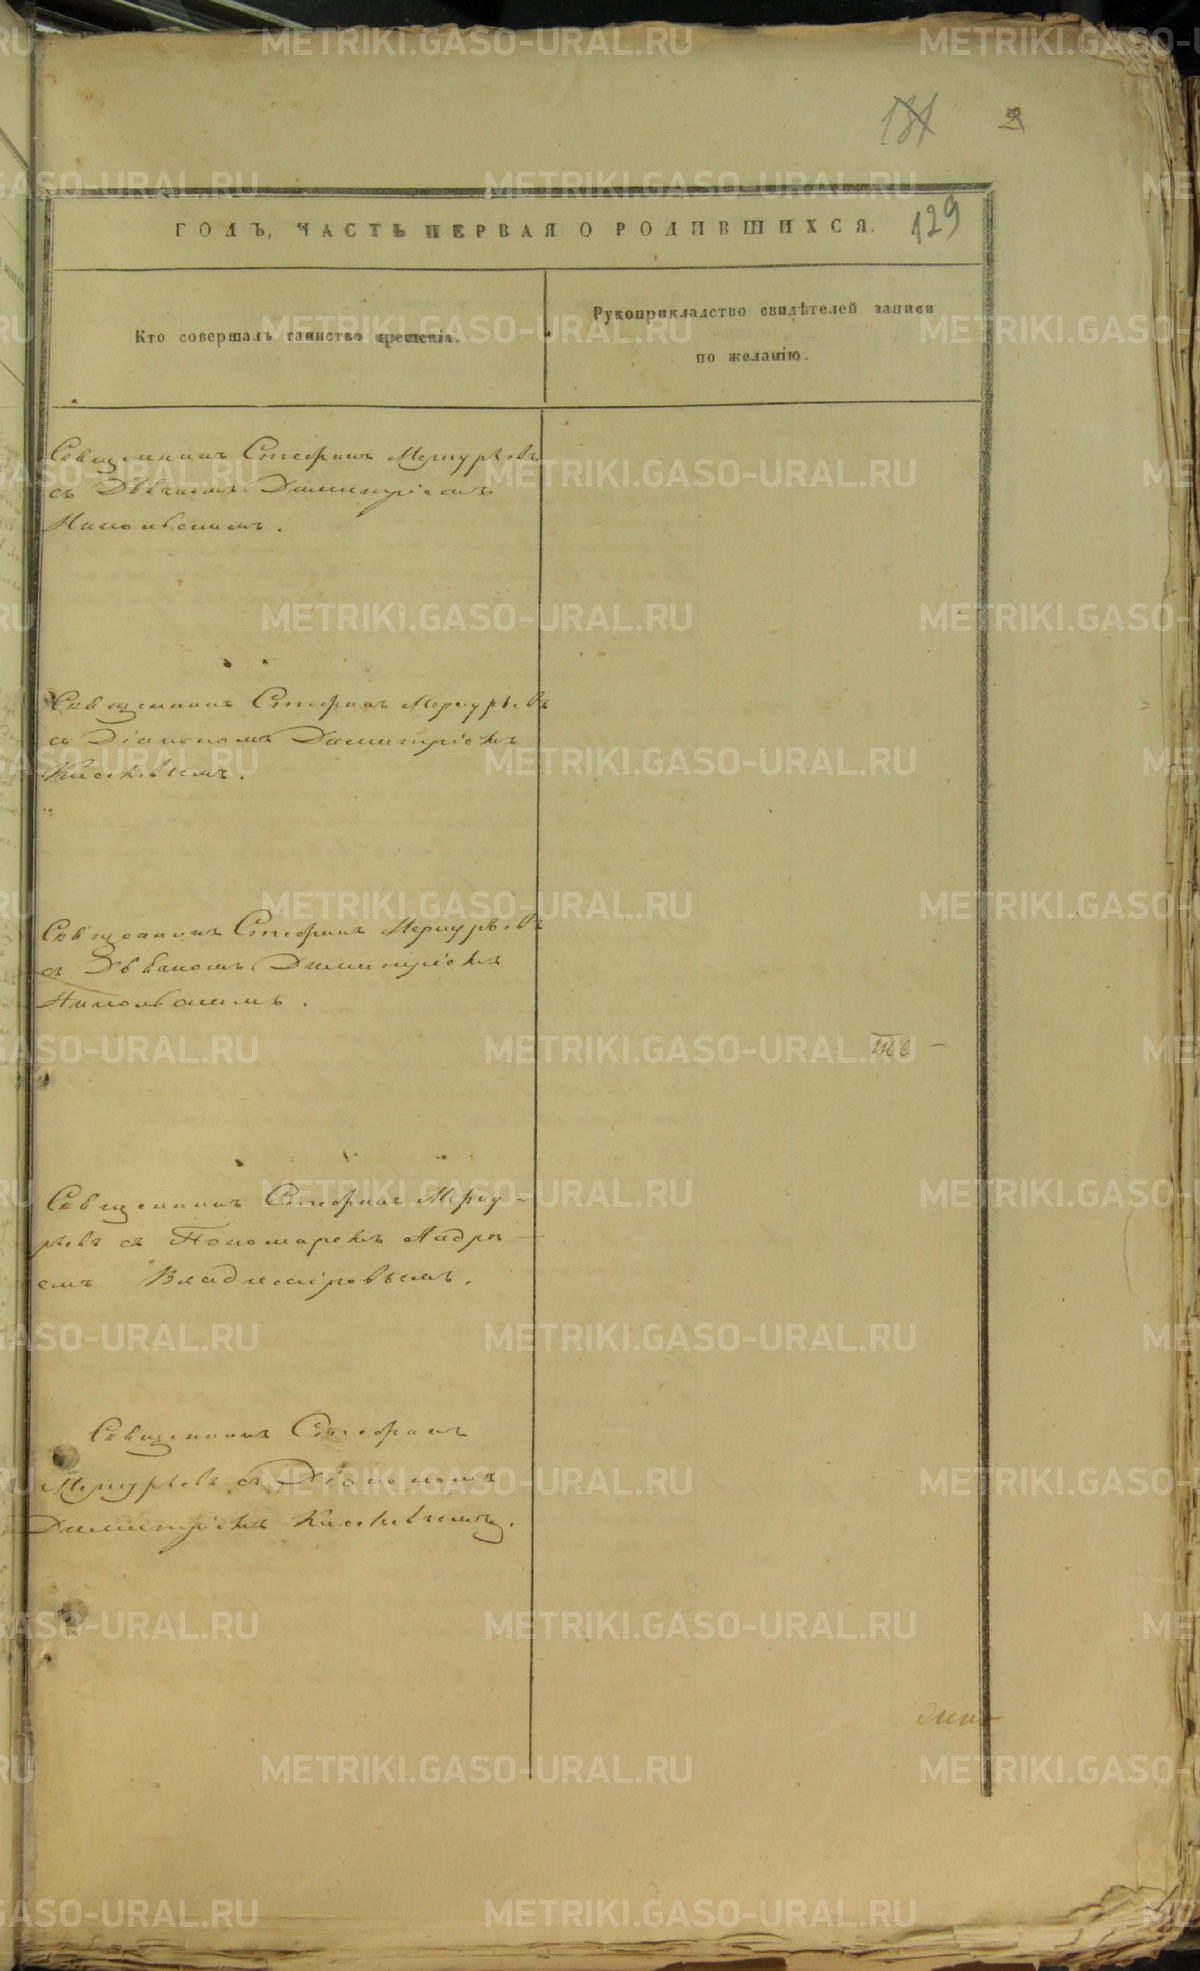 131 2
129
ГОДЪ, ЧАСТЬ ПЕРВАЯ О РОДИВШИХСЯ.
Кто совершалъ таинство крещенія.
Рукоприкладство свидѣтелей записи
по желанію.
Священникъ Стефанъ Меркурьевъ
съ Дьячкомъ Димитріемъ
Никольскимъ.
Священникъ Стефанъ Меркурьевъ
съ Діакономъ Димитріемъ
Священникъ Стефанъ Меркурьевъ
съ Дьячкомъ Димитріемъ
Никольскимъ.
Священникъ Стефанъ Мерку-
рьевъ съ Пономаремъ Андре-
емъ Владиміровымъ.
Священникъ Стефанъ
Меркурьевъ съ Діакономъ
Димитріемъ
METRIKI.GASO-URAL.RU